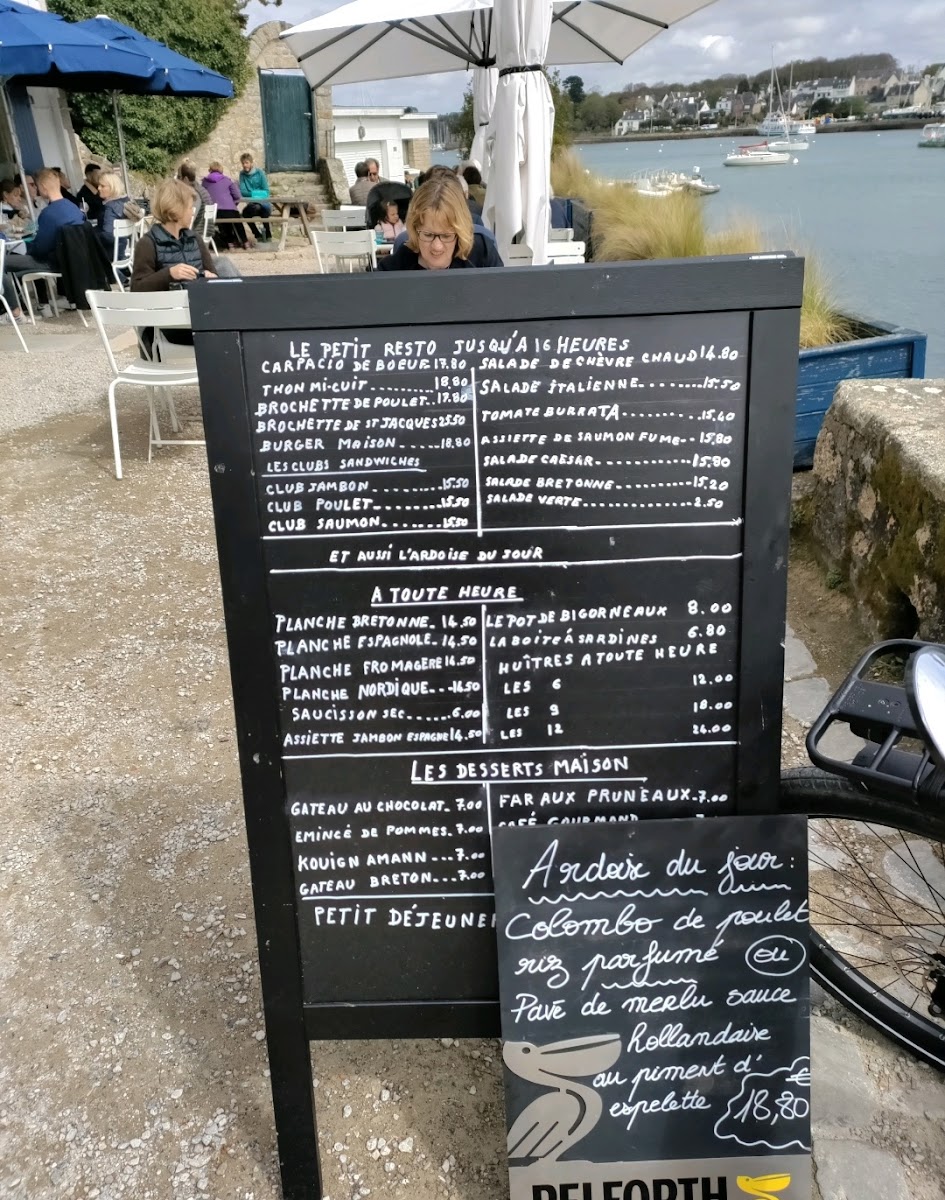 LE PETIT RESTO JUSQU'A 16 HEURES
CARPACIO DE BOEUF 17.80
THON MI-CUIT........... 18.80
BROCHETTE DE POULET.. 17.80
BROCHETTE DE ST JACQUES 25.50
BURGER MAISON ..... 18.80
LES CLUBS SANDWICHES
CLUB JAMBON.......... 15.50
CLUB POULET.......... 15.50
CLUB SAUMON........ 15.50
SALADE DE CHÈVRE CHAUD 14.80
SALADE ITALIENNE........ 15.50
TOMATE BURRATA.......... 15.40
ASSIETTE DE SAUMON FUME.. 15.80
SALADE CAESAR............ 15.80
SALADE BRETONNE.......... 15.20
SALADE VERTE.............. 2.50
ET AUSSI L'ARDOISE DU JOUR
A TOUTE HEURE
PLANCHE BRETONNE. 14.50
PLANCHE ESPAGNOLE. 14.50
PLANCHE FROMAGERE 14.50
PLANCHE NORDIQUE... 16.50
SAUCISSON SEC...... 6.00
ASSIETTE JAMBON ESPAGNE 14.50
LE POT DE BIGORNEAUX 8.00
LA BOITE À SARDINES 6.80
HUÎTRES A TOUTE HEURE
LES 6 12.00
LES 9 18.00
LES 12 24.00
LES DESSERTS MAISON
GATEAU AU CHOCOLAT. 7.00
EMINCÉ DE POMMES. 7.00
KOUIGN AMANN ... 7.00
GATEAU BRETON... 7.00
FAR AUX PRUNEAUX. 7.00
CAFÉ GOURMAND
PETIT DÉJEUNER
Ardoise du jour :
Colombo de poulet
riz parfumé ou
Pavé de merlu sauce
hollandaise
au piment d'
espelette 18,80 €
BELFORTH